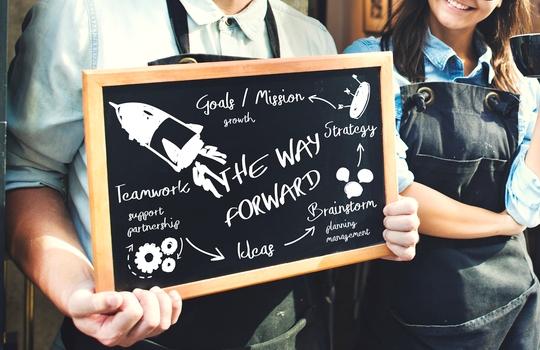 Goals / Mission
growth
Strategy
THE WAY
FORWARD
Teamwork
support
partnership
Brainstorm
planning
management
Ideas